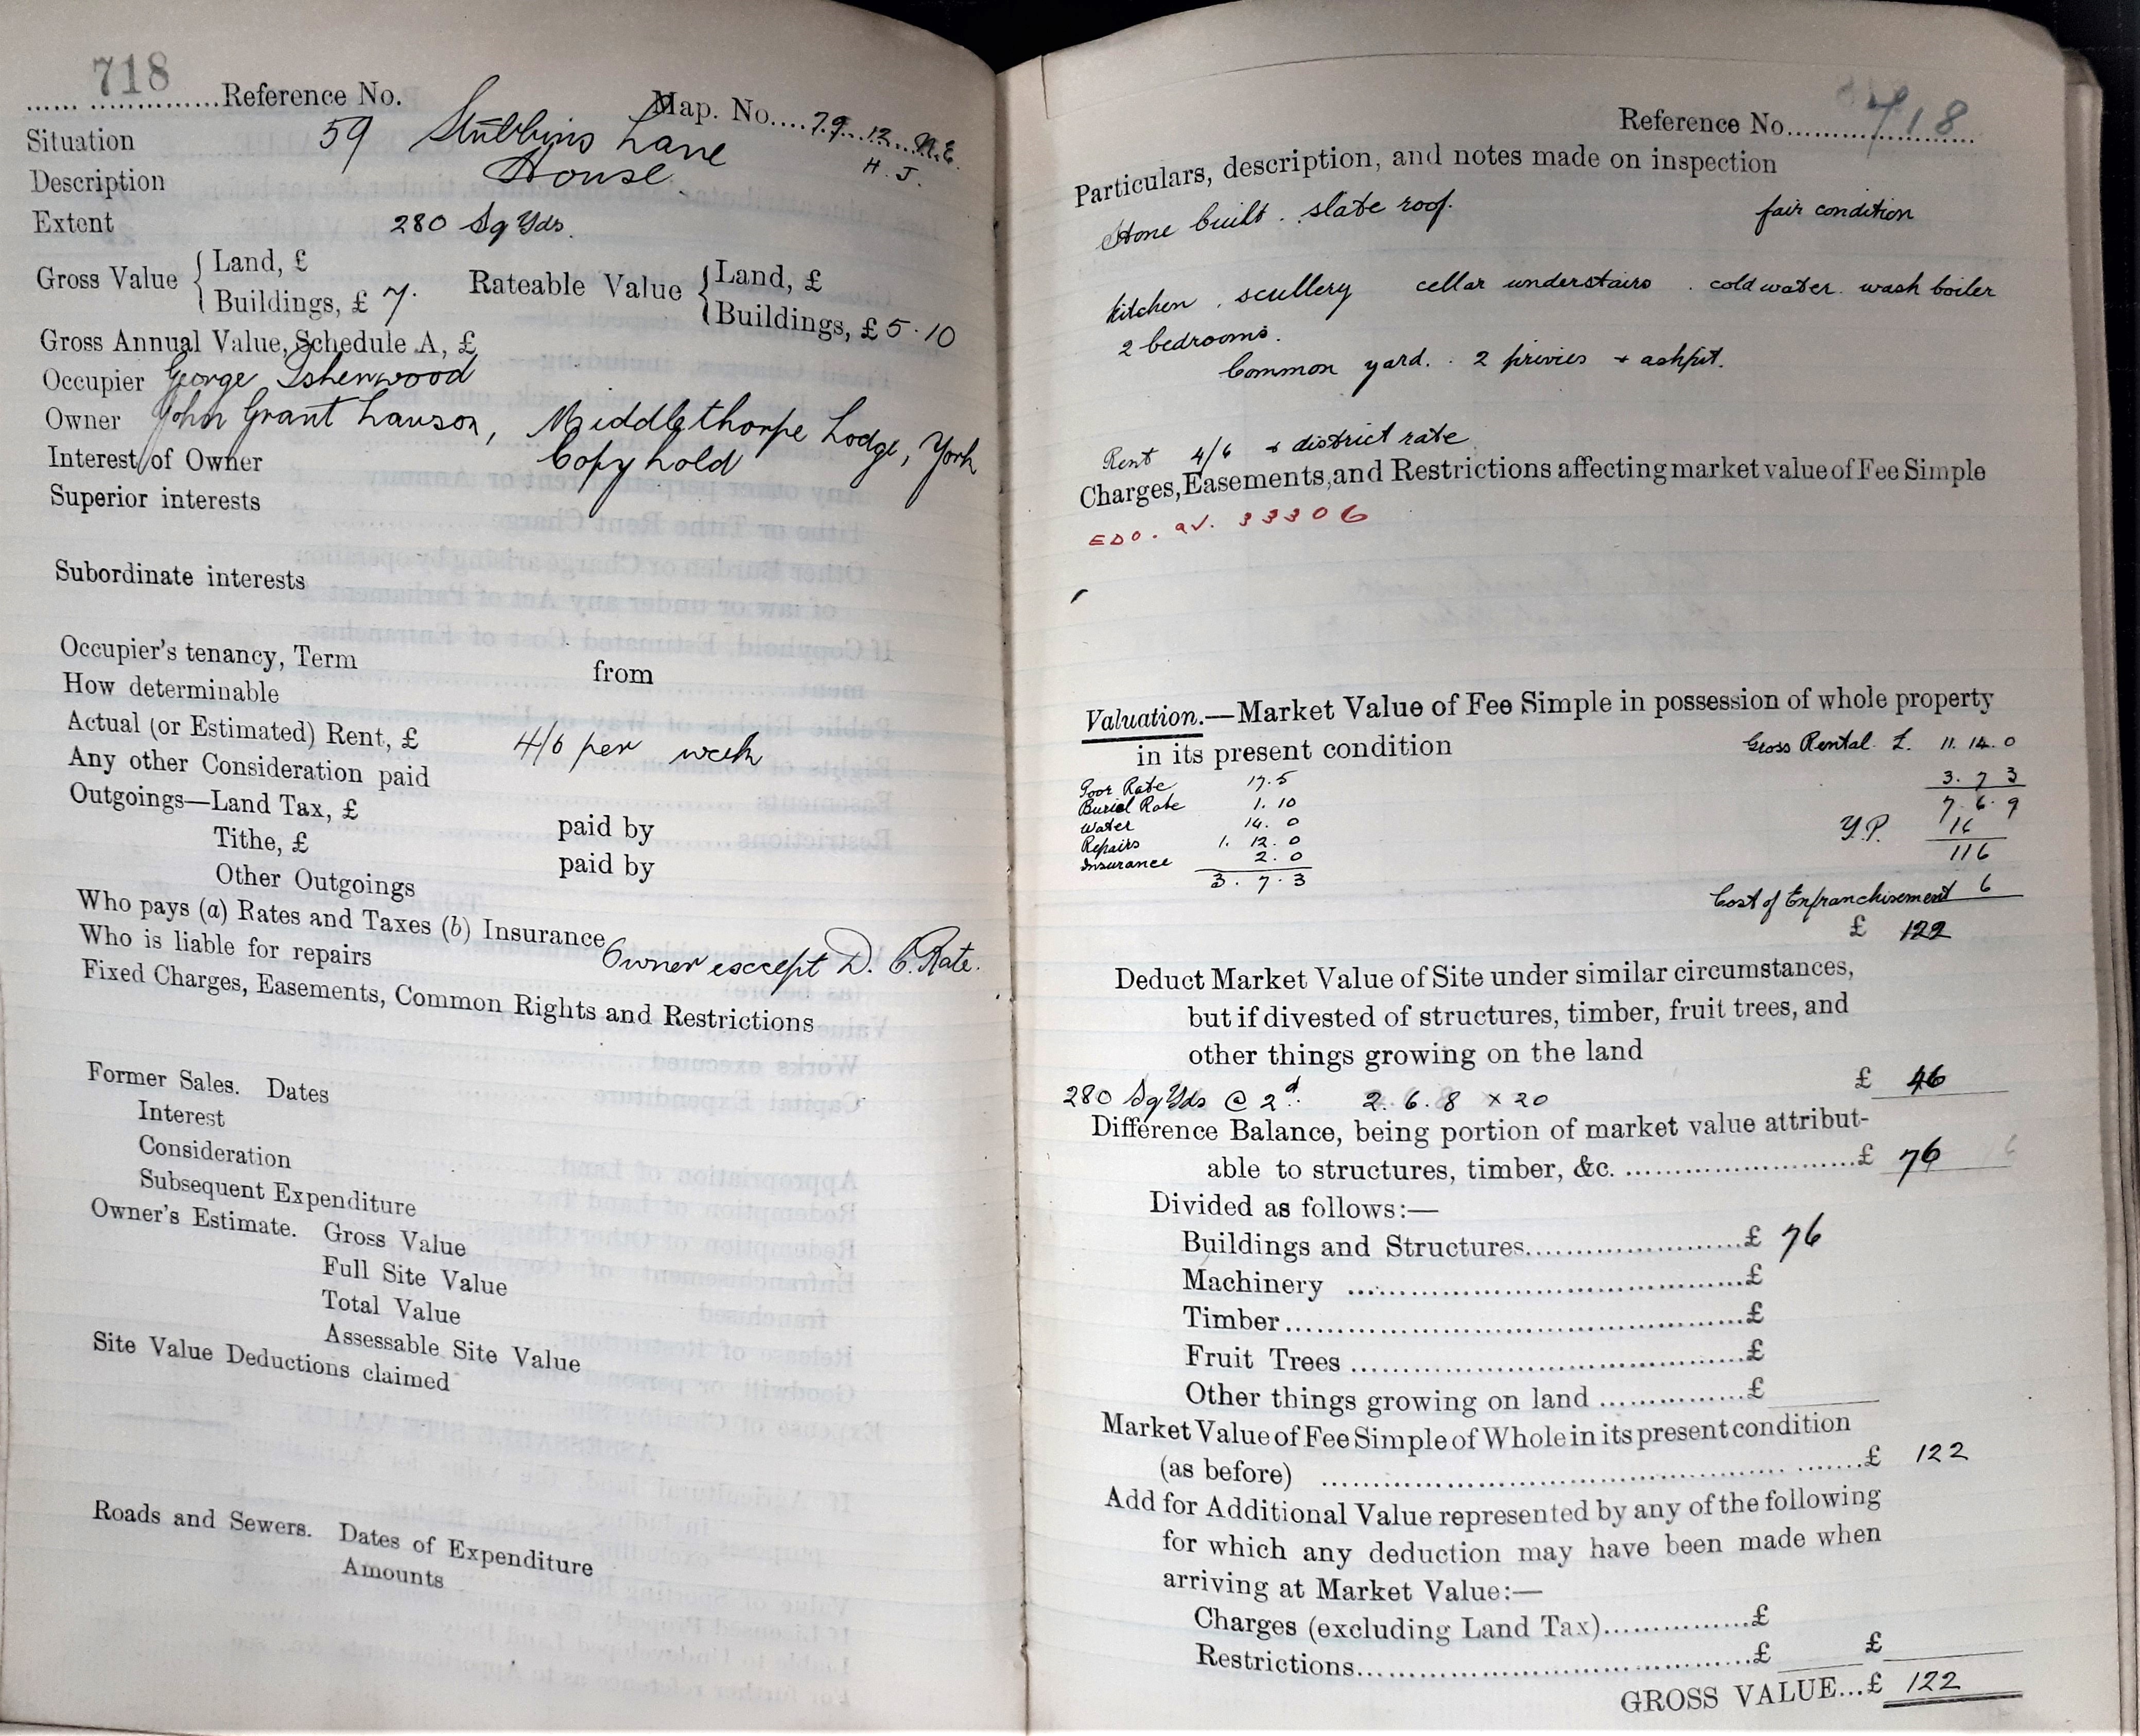 718
Reference No. Map. No. 79. 12. N.E.
H. J.
Situation 59 Stubbins Lane
Description House.
Extent 280 Sq Yds.
Gross Value { Land, £ Rateable Value { Land, £
Buildings, £ 7. Buildings, £ 5.10
Gross Annual Value, Schedule A, £
Occupier George Isherwood
Owner John Grant Lawson, Middlethorpe Lodge, York
Interest of Owner Copyhold
Superior interests
Subordinate interests
Occupier's tenancy, Term from
How determinable
Actual (or Estimated) Rent, £ 4/6 per week
Any other Consideration paid
Outgoings—Land Tax, £ paid by
Tithe, £ paid by
Other Outgoings
Who pays (a) Rates and Taxes (b) Insurance
Who is liable for repairs Owner except D. C. Rate.
Fixed Charges, Easements, Common Rights and Restrictions
Former Sales. Dates
Interest
Consideration
Subsequent Expenditure
Owner's Estimate. Gross Value
Full Site Value
Total Value
Assessable Site Value
Site Value Deductions claimed
Roads and Sewers. Dates of Expenditure
Amounts
Reference No. 718
Particulars, description, and notes made on inspection
Stone built. slate roof. fair condition
kitchen, scullery cellar understairs. cold water. wash boiler
2 bedrooms.
Common yard. 2 privies + ashpit.
Rent 4/6 + district rate
Charges, Easements, and Restrictions affecting market value of Fee Simple
33306
Valuation.—Market Value of Fee Simple in possession of whole property
in its present condition Gross Rental £. 11. 14. 0
Poor Rate 17.5 3. 7 3
Burial Rate 1. 10 7. 6. 9
Water 14. 0 Y.P. 16
Repairs 1. 12. 0 116
Insurance 2. 0
3. 7. 3 Cost of Enfranchisement 6
£ 122
Deduct Market Value of Site under similar circumstances,
but if divested of structures, timber, fruit trees, and
other things growing on the land
280 Sq Yds @ 2d. 2. 6. 8 x 20 £ 46
Difference Balance, being portion of market value attribut-
able to structures, timber, &c. £ 76
Divided as follows:—
Buildings and Structures £ 76
Machinery £
Timber £
Fruit Trees £
Other things growing on land £
Market Value of Fee Simple of Whole in its present condition
(as before) £ 122
Add for Additional Value represented by any of the following
for which any deduction may have been made when
arriving at Market Value:—
Charges (excluding Land Tax) £
Restrictions £ £
GROSS VALUE...£ 122